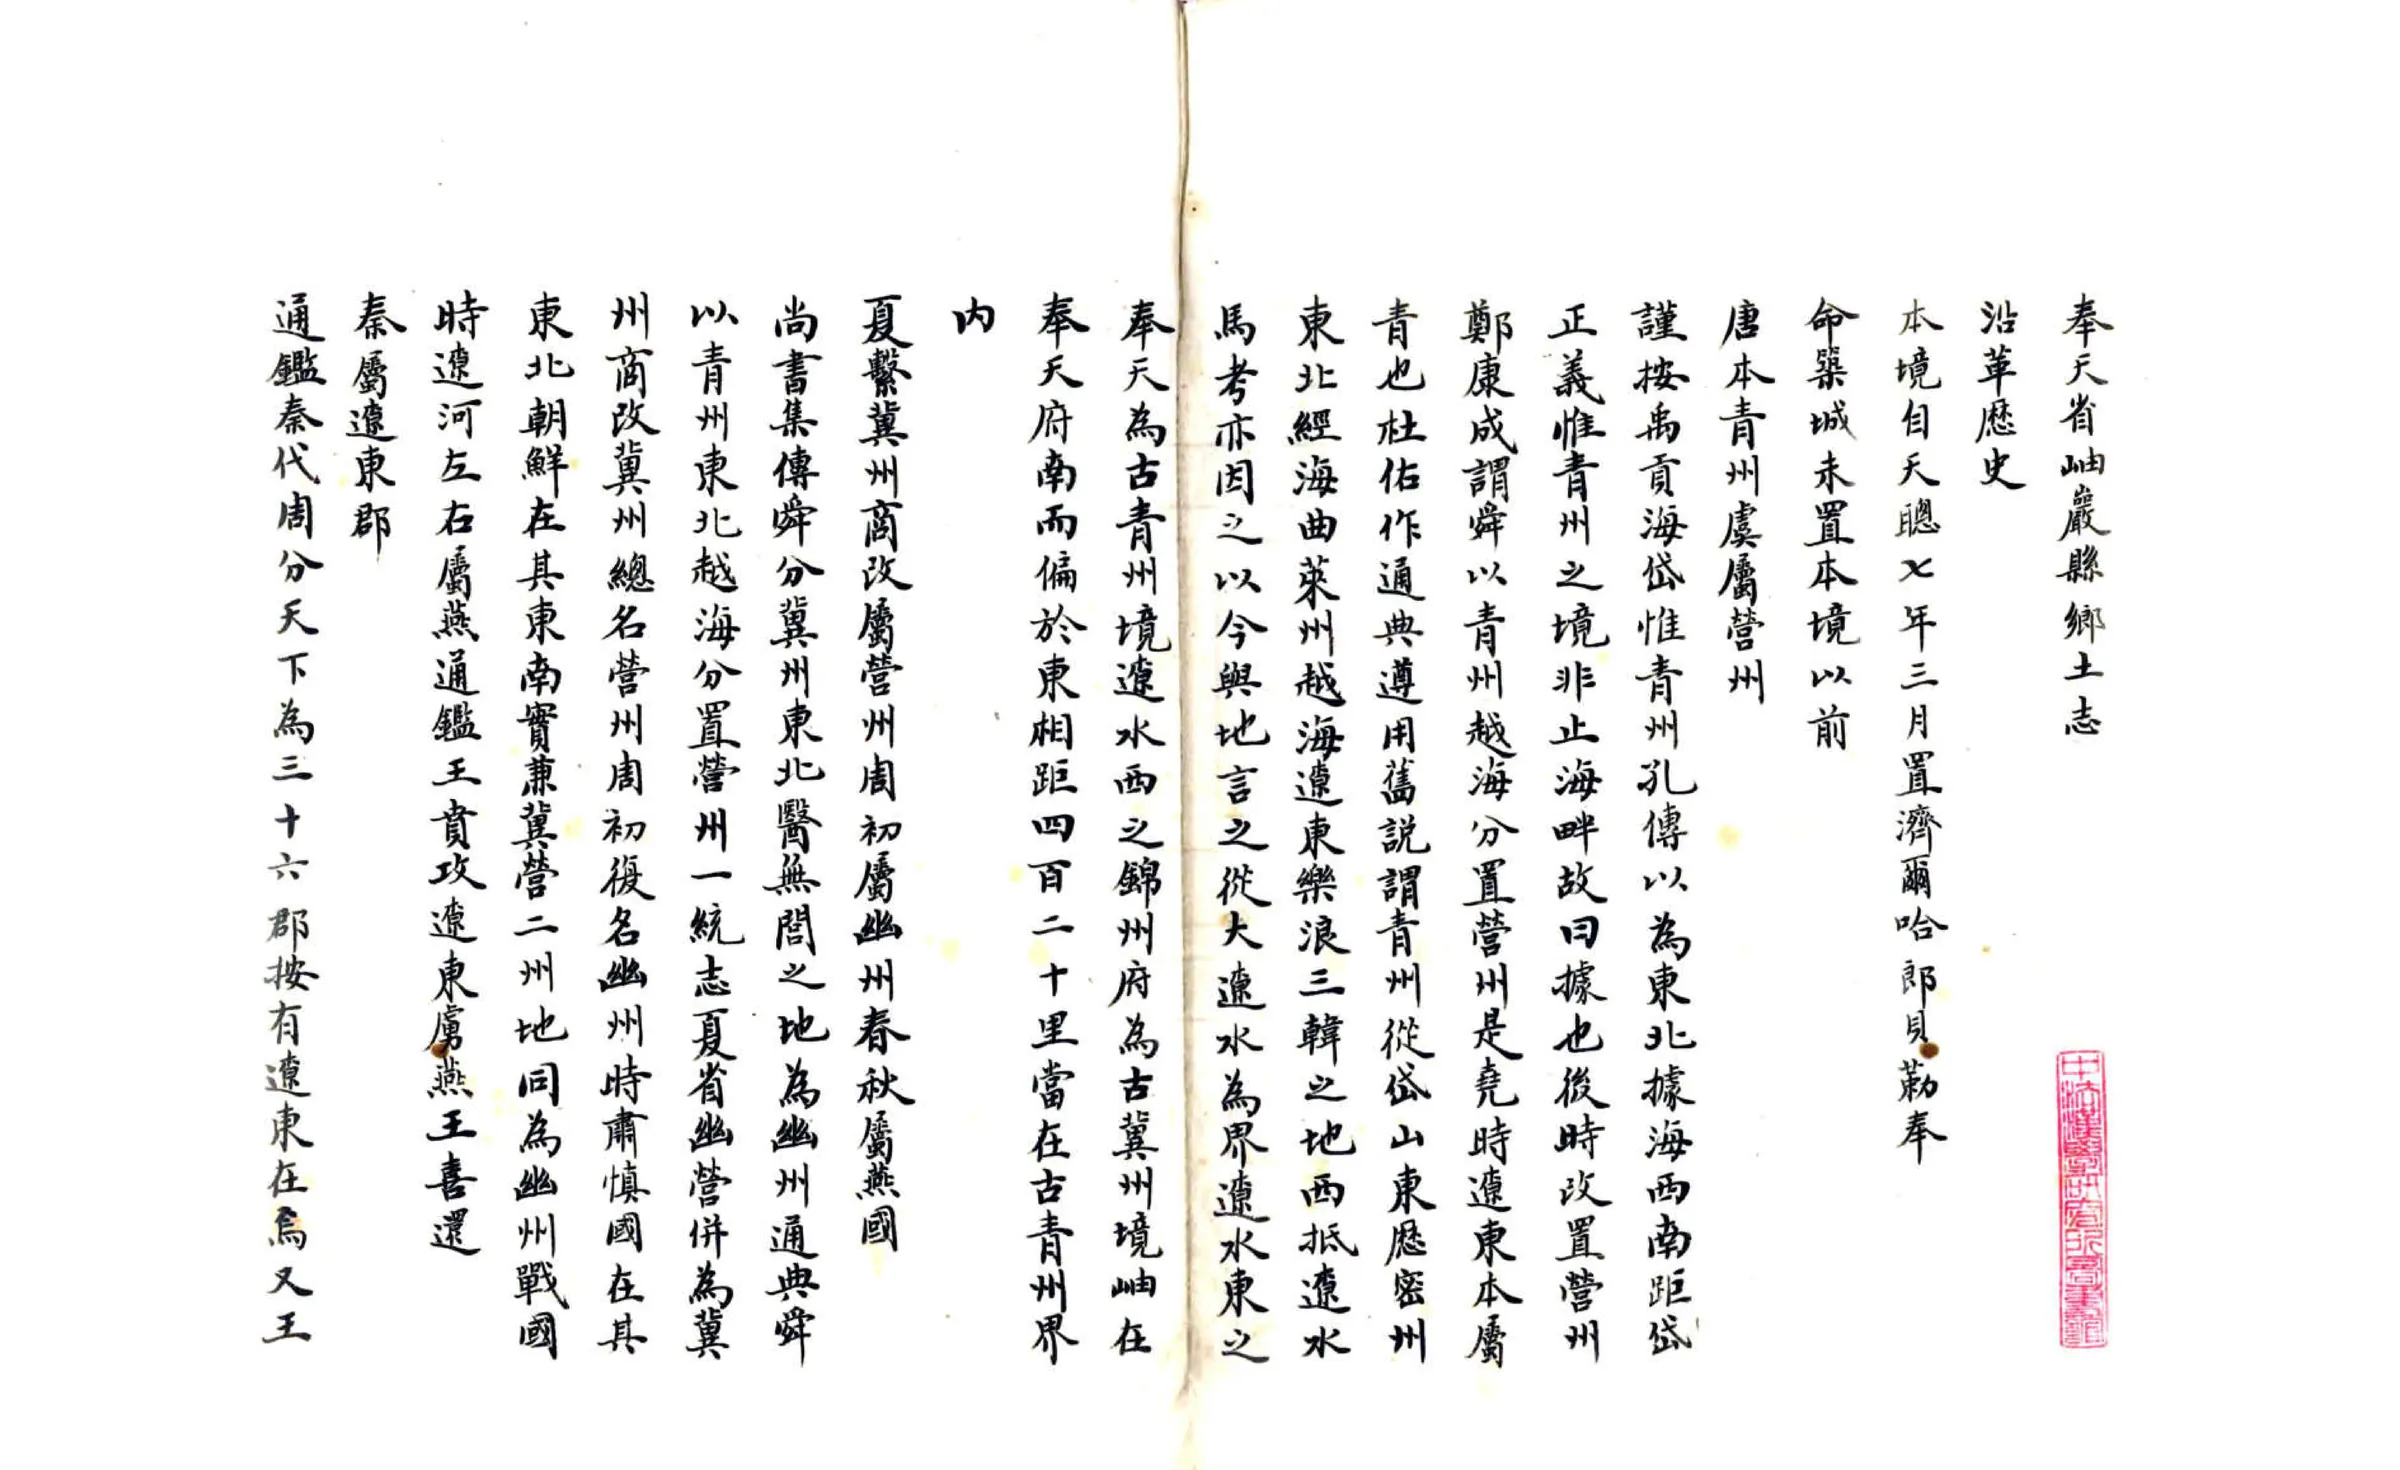 奉天省岫巖縣鄉土志
沿革歷史
本境自天聰七年三月置濟爾哈郎貝勒奉
命築城未置本境以前
唐本青州虞屬營州
謹按禹貢海岱惟青州孔傳以為東北據海西南距岱
正義惟青州之境非止海畔故曰據也後時改置營州
鄭康成謂舜以青州越海分置營州是堯時遼東本屬
青也杜佑作通典遵用舊說謂青州從岱山東歷密州
東北經海曲萊州越海遼東樂浪三韓之地西抵遼水
馬考亦因之以今輿地言之從大遼水為界遼水東之
奉天為古青州境遼水西之錦州府為古冀州境岫在
奉天府南而偏於東相距四百二十里當在古青州界
內
夏繫冀州商改屬營州周初屬幽州春秋屬燕國
尚書集傳舜分冀州東北醫無閭之地為幽州通典舜
以青州東北越海分置營州一統志夏省幽營併為冀
州商改冀州總名營州周初復名幽州時肅慎國在其
東北朝鮮在其東南實兼冀營二州地同為幽州戰國
時遼河左右屬燕通鑑王賁攻遼東虜燕王喜還
秦屬遼東郡
通鑑秦代周分天下為三十六郡按有遼東在焉又王
中法漢學研究所圖書館